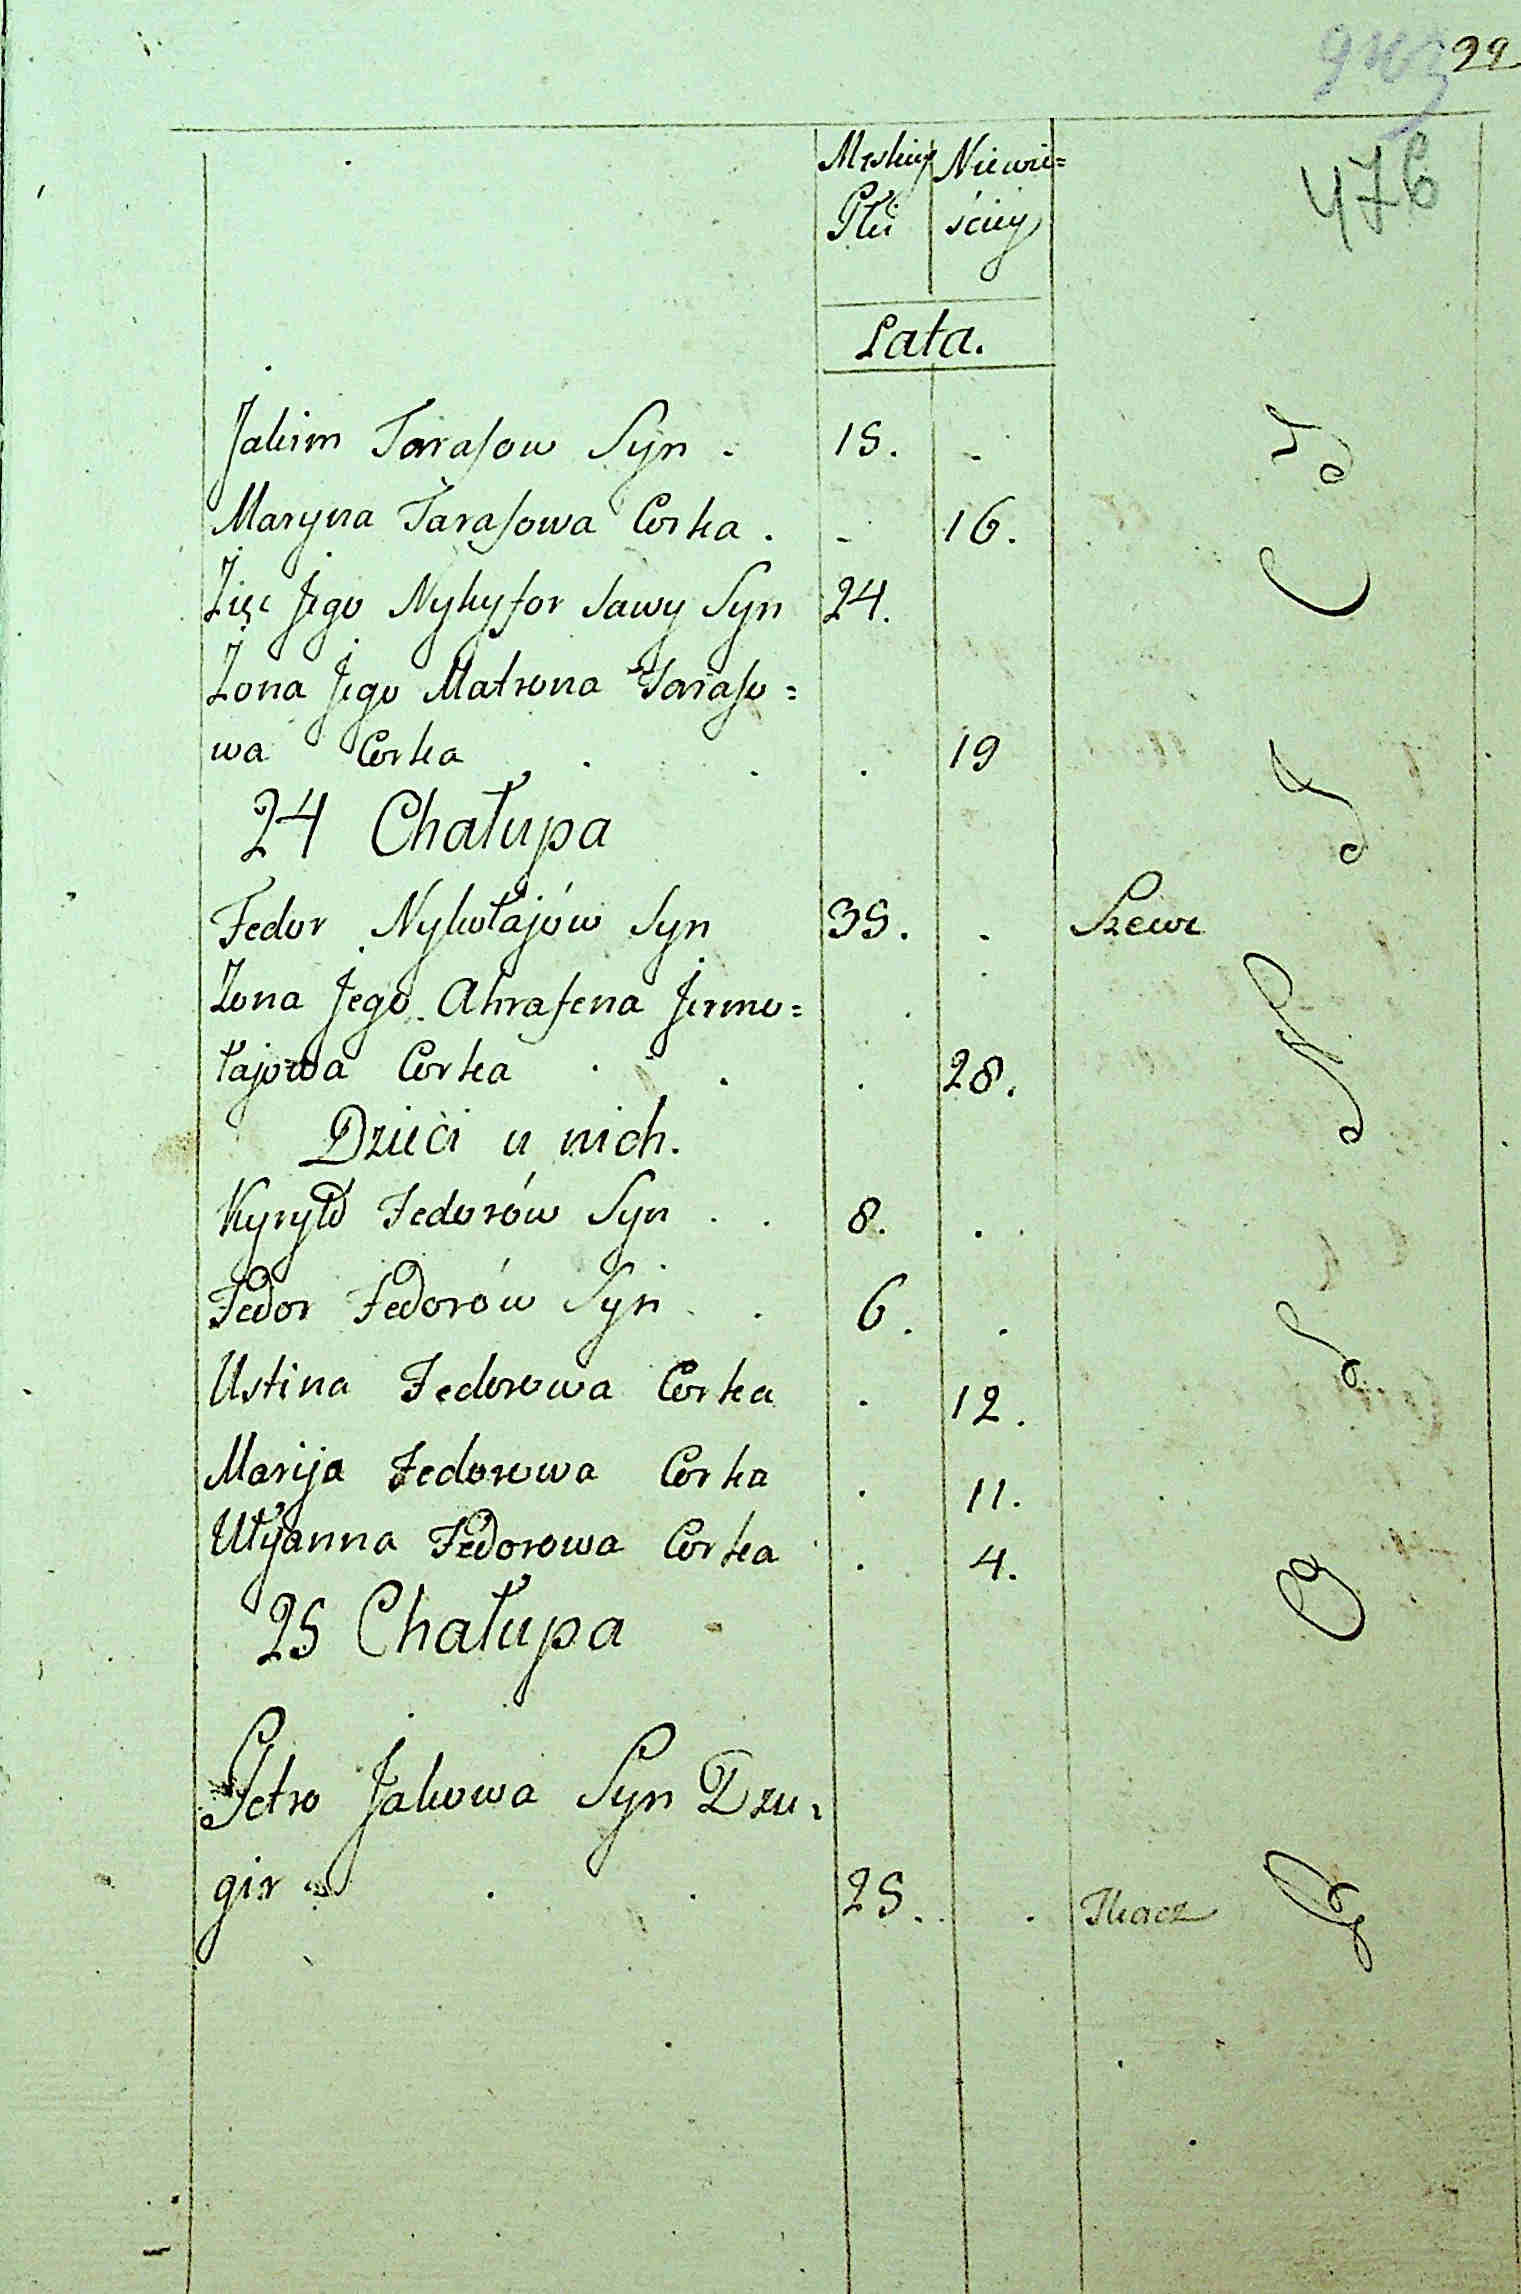 99
476
Męskiey Niewie=
Płci ściey
Lata.
Jakim Tarasow Syn . 15. -
Maryna Tarasowa Corka . - 16.
Zięć Jego Nykyfor Sawy Syn 24.
Żona Jego Matrona Taraso=
wa Corka . . . 19
24 Chałupa
Fedor Nykołajów Syn 35. . Szewc
Żona Jego Ahrafena Jermo=
łajowa Corka . . . 28.
Dzieci u nich.
Kyryło Fedorów Syn . . 8. .
Fedor Fedorów Syn . . 6. .
Ustina Fedorowa Corka . 12.
Marija Fedorowa Corka . 11.
Ulyanna Fedorowa Corka . 4.
25 Chałupa
Petro Jakowa Syn Dzu=
gir . . 25. . Tkacz